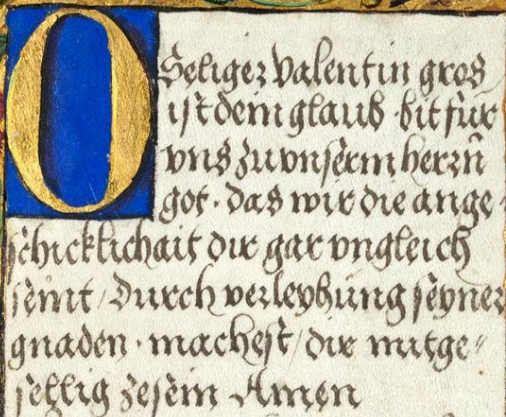 O Seliger Valentin gros
ist dein glaub · bit fur
vns zu vnserm herrn
got · das wir die ange-
schicklichait dir gar vngleich
seint / durch verleyhung seyner
gnaden · machest / dir mitge-
sellig zesein Amen